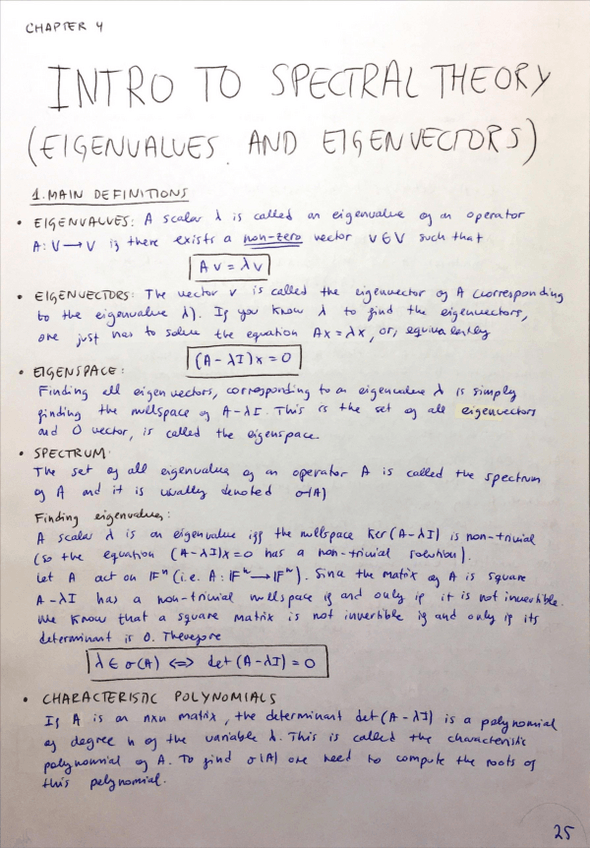 CHAPTER 4
INTRO TO SPECTRAL THEORY
(EIGENVALUES AND EIGENVECTORS)
1. MAIN DEFINITIONS
• EIGENVALUES: A scalar λ is called an eigenvalue of an operator
A: V → V if there exists a non-zero vector v ∈ V such that
Av = λv
• EIGENVECTORS: The vector v is called the eigenvector of A (corresponding
to the eigenvalue λ). If you know λ to find the eigenvectors,
one just has to solve the equation Ax = λx, or, equivalently
(A - λI)x = 0
• EIGENSPACE:
Finding all eigenvectors, corresponding to an eigenvalue λ is simply
finding the nullspace of A - λI. This is the set of all eigenvectors
and 0 vector, is called the eigenspace.
• SPECTRUM:
The set of all eigenvalues of an operator A is called the spectrum
of A and it is usually denoted σ(A)
Finding eigenvalues:
A scalar λ is an eigenvalue iff the nullspace Ker(A - λI) is non-trivial
(so the equation (A - λI)x = 0 has a non-trivial solution).
Let A act on 𝔽ⁿ (i.e. A: 𝔽ⁿ → 𝔽ⁿ). Since the matrix of A is square
A - λI has a non-trivial nullspace if and only if it is not invertible.
We know that a square matrix is not invertible if and only if its
determinant is 0. Therefore
λ ∈ σ(A) ⟺ det(A - λI) = 0
• CHARACTERISTIC POLYNOMIALS
If A is an nxn matrix, the determinant det(A - λI) is a polynomial
of degree n of the variable λ. This is called the characteristic
polynomial of A. To find σ(A) one need to compute the roots of
this polynomial.
25